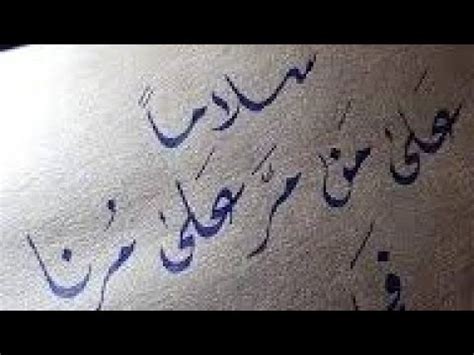 سلاماً
عَلىٰ مَن مرَّ عَلىٰ مُرنا